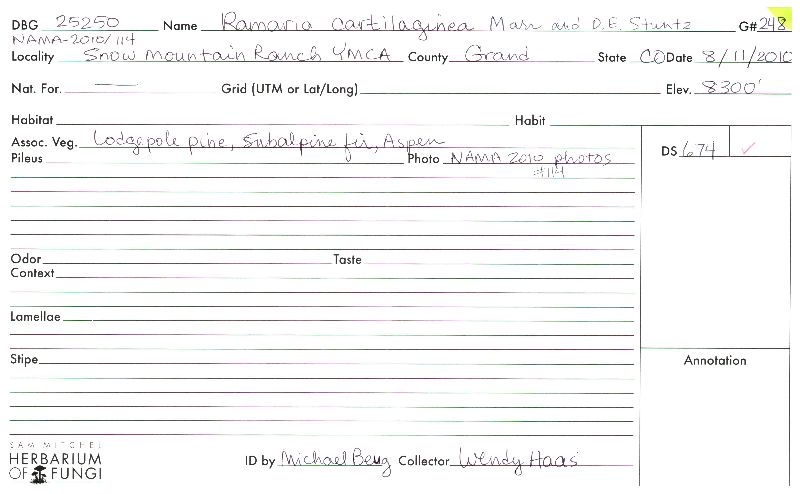 DBG 25250 Name Ramaria cartilaginea Marr and D.E. Stuntz G# 248
NAMA-2010/114
Locality Snow Mountain Ranch YMCA County Grand State CO Date 8/11/2010
Nat. For. — Grid (UTM or Lat/Long) Elev. 8300'
Habitat Habit
Assoc. Veg. Lodgepole pine, Subalpine fir, Aspen
DS 674 ✓
Pileus Photo NAMA 2010 photos
#114
Odor Taste
Context
Lamellae
Stipe
Annotation
SAM MITCHEL
HERBARIUM
OF FUNGI
ID by Michael Beug Collector Wendy Haas